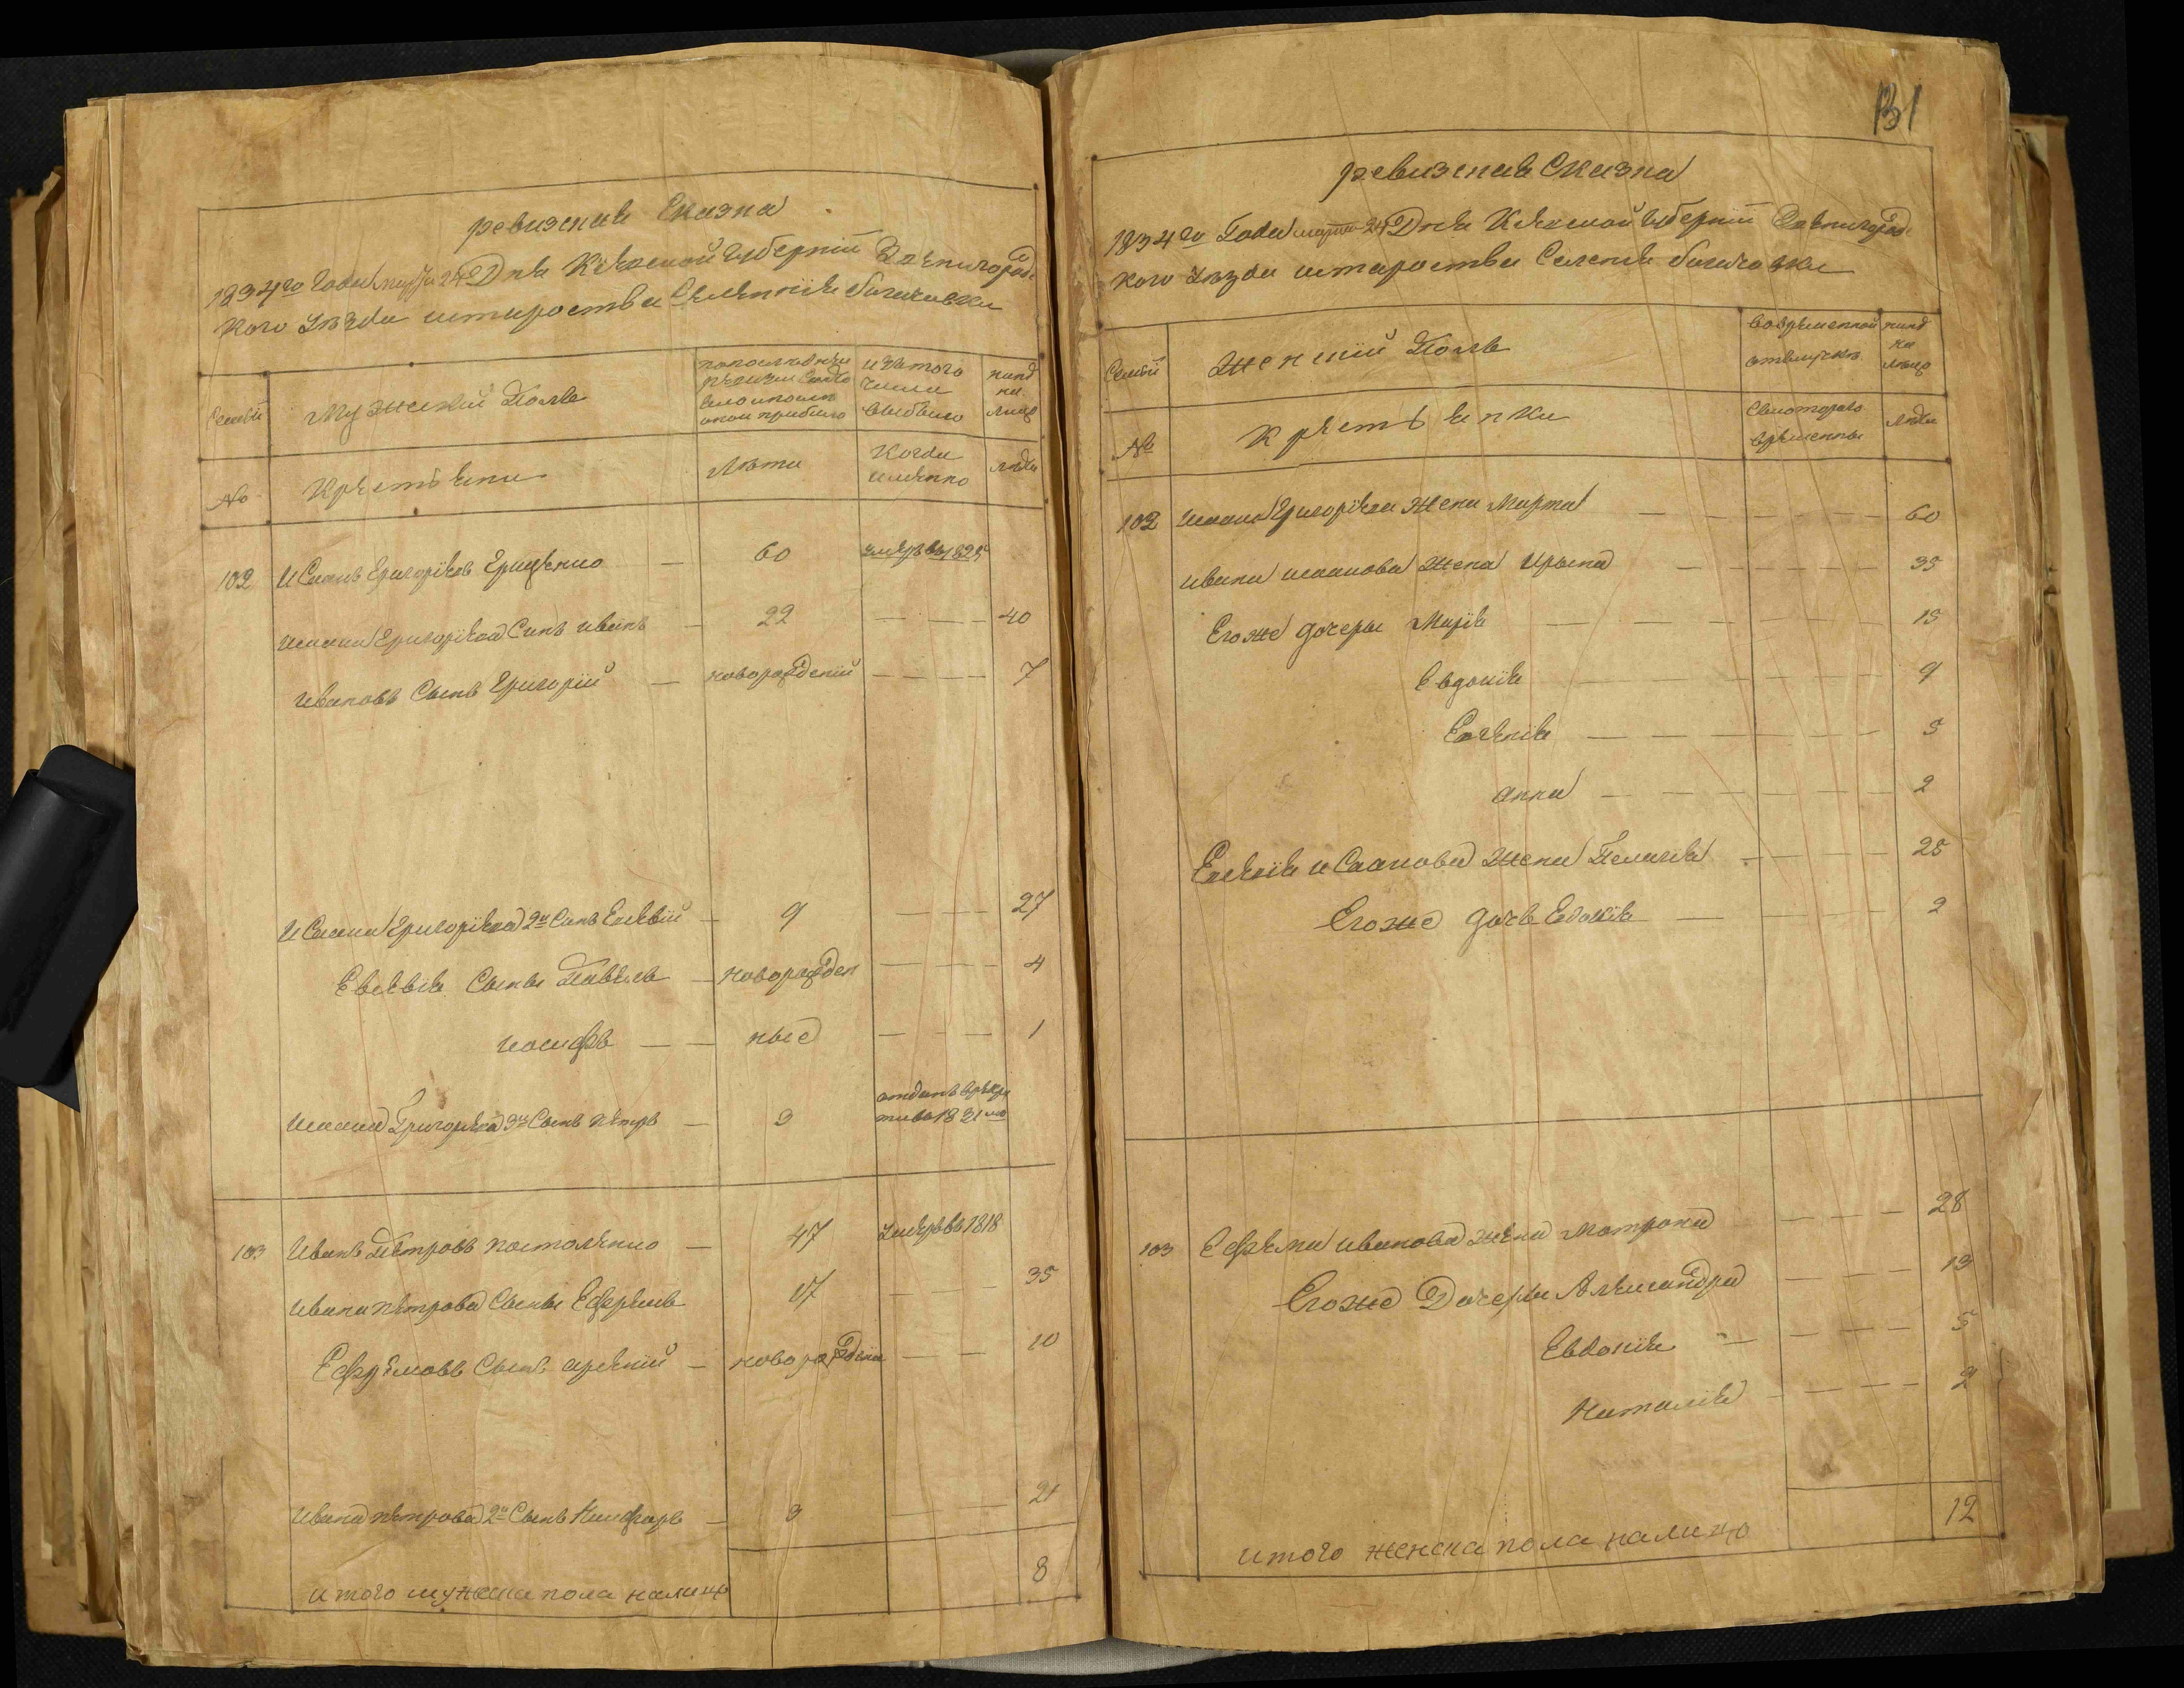 ревизская Сказка
1834го Года марта 24 Дня Кіевской губерніи Звенигород
кого уѣзда староства Селенія
Семьи
Мужеский Полъ
по последней
ревизии Состо
яло и после
оной прибыло
изъ того
числа
выбыло
нынѣ
на
лицо
№
Крестьяни
Лѣта
Когда
именно
лѣта
102 Исаакъ Григоріевъ Грищенко — 60 умеръ въ 1825
Исаака Григоріева Синъ иванъ — 22 — — 40
Ивановъ Сынъ Григорій — новорожденій — — — — 7
Исаака Григоріева 2й Синъ Евсевій — 9 — — — 27
Евсевія Сыны Павелъ — новорожден — — — 4
иосифъ — — ные — — — 1
Исаака Григоріева 3й Сынъ петръ — 3 отданъ в рекру
ты въ 1831мъ
103 Иванъ Петровъ постоленко — 47 умеръ въ 1818
Ивана петрова Сыны Ефремъ 17 — — — 35
Ефремовъ Сынъ арсеній — новорожdени — — 10
Ивана петрова 2й Сынъ Никифоръ — 3 — 21
итого мужеска пола налицо 8
131
ревизская Сказка
1834го Года марта 24 Дня Кіевской губерніи Звенигород
кого уѣзда староства Селенія
Семьи
Женский Полъ
во временной
отлучкѣ
нынѣ
на
лицо
№
Крестьянки
С которого
времены
лѣта
102 Исаака Григоріева Жена Марта — — — — — 60
ивана исаакова жена Ирына — — — — — 35
Егоже дочеры Марія — — — — — 15
Евдокія — — — — — 9
Евгенія — — — — — 5
анна — — — — — 2
Евсевія исаакова жена Пелагія — — — — 25
Егоже дочь Евдокія — — — — 2
103 Ефрема иванова жена Матрона — — — 28
Егоже Дочеры Александра — — — 13
Евдокія — — — — 5
Наталія — — — — 2
итого женска пола налицо 12